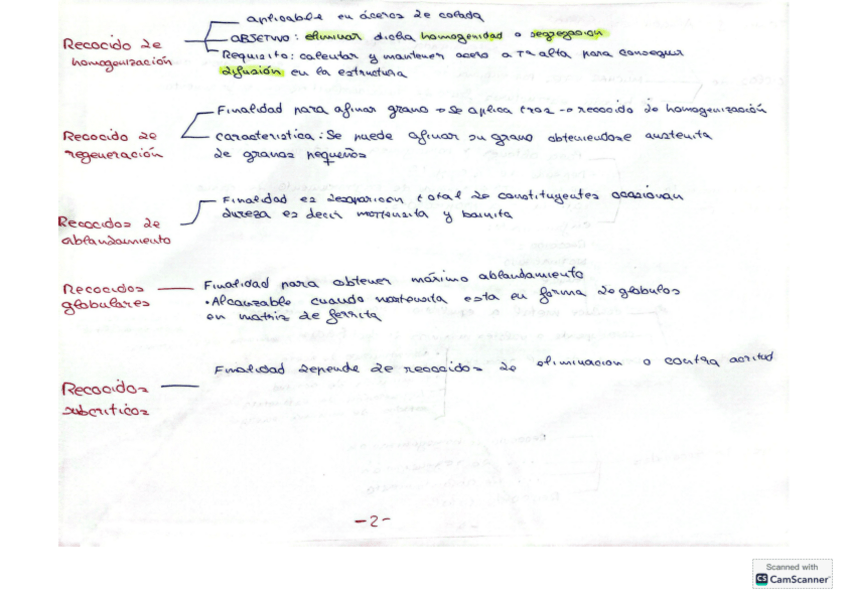 aplicable en áceros de colada
Recocido de
homogenización
OBSETIVO: eliminar dicha homogenidad o segregacion
Requisito: calentar y mantener acero a Tª alta para conseguir
difusión en la estructura
Finalidad para afinar grano → Se aplica tras → recocido de homogenización
Recocido de
regeneración
caracteristica: Se puede afinar su grano obteniendose austenita
de granos pequeños
Finalidad es desaparicon total de constituyentes ocasionan
dureza es decir martensita y bainita
Recocidos de
ablandamiento
Recocidos
globulares
Finalidad para obtener máximo ablandamiento
• Alcanzable cuando martensita esta en forma de globulos
en matriz de ferrita
Finalidad depende de recocidos de eliminacion o contra acritud
Recocidos
subcriticos
-2-
Scanned with
CS CamScanner